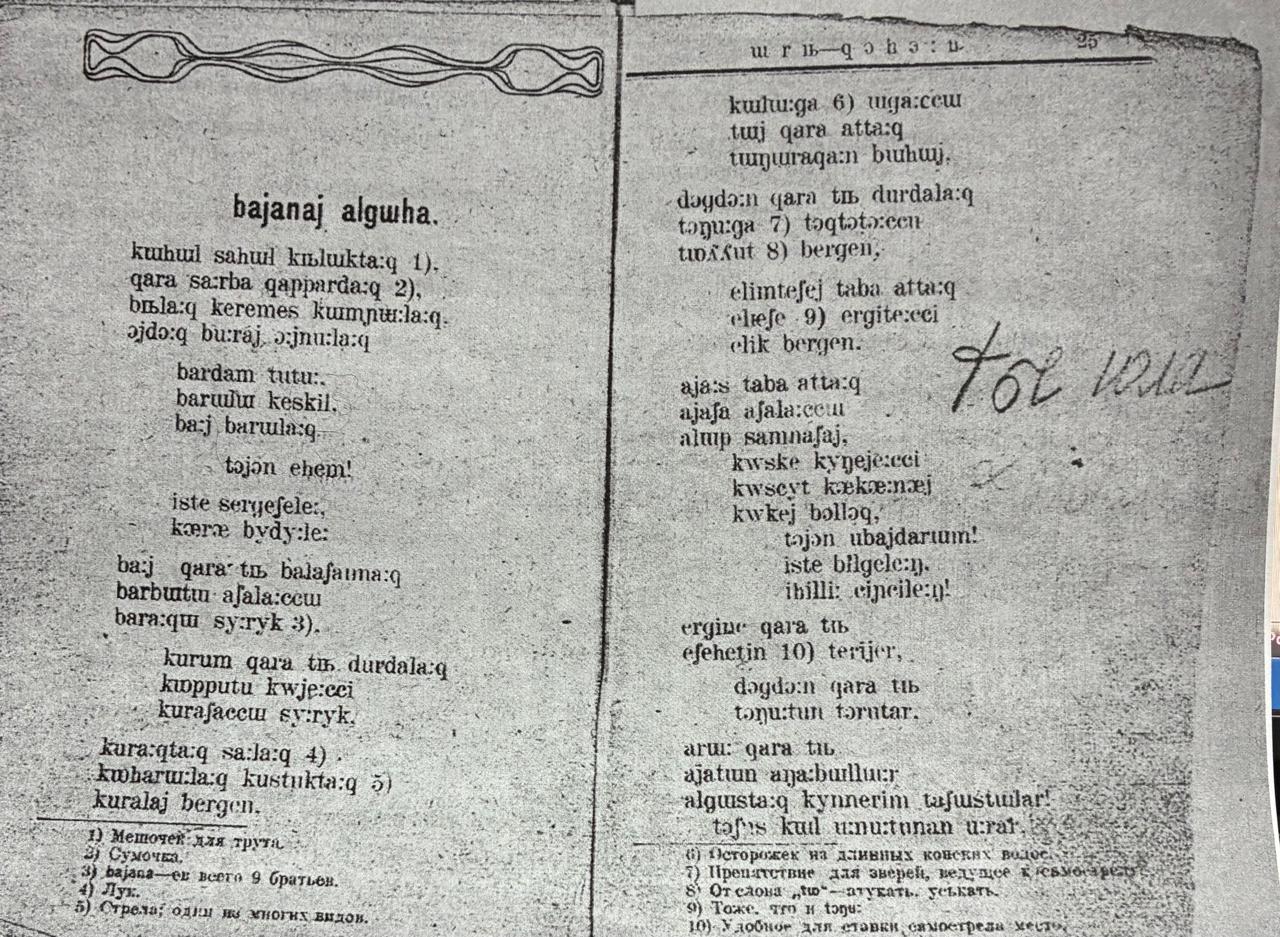 bajanaj algɯha.
kɯhɯl sahɯl kꙑlɯkta:q 1),
qara sa:rba qapparda:q 2),
bꙑla:q keremes kɯmɲɯ:la:q.
ɔjdɔ:q bu:raj ɔ:jnu:la:q
bardam tutu:.
barɯlɯ keskil,
ba:j barɯla:q
tɔjɔn ehem!
iste sergeʃele:,
kæræ bydy:le:
ba:j qara tꙑ balaʃaɯna:q
barbɯtɯ aʃala:ccɯ
bara:qɯ sy:ryk 3).
kurum qara tꙑ durdala:q
kɯpputu kwje:cci
kuraʃaccɯ sy:ryk.
kura:qta:q sa:la:q 4)
kɯharɯ:la:q kustukta:q 5)
kuralaj bergen.
1) Мешочек для трута
2) Сумочка.
3) bajana—ев всего 9 братьев.
4) Лук.
5) Стрела; один из многих видов.
ɯ r ꙑ—q ɔ h ɔ : ꙑ 25
kɯlɯ:ga 6) ɯga:ccɯ
tɯj qara atta:q
tɯŋɯraqa:n bɯhɯj.
dɔgdɔ:n qara tꙑ durdala:q
tɔŋu:ga 7) tɔqtɔtɔ:ccu
bergen,
elimteʃej taba atta:q
9) ergite:cci
elik bergen.
aja:s taba atta:q
ajaʃa aʃala:ccɯ
alɯp samnaʃaj,
kwske kyŋeje:cci
kwscyt kækæ:næj
kwkej bɔllɔq,
tɔjɔn ubajdarɯm!
iste bilgele:ŋ.
ihilli: ciɲcile:ŋ!
ergine qara tꙑ
eʃehetin 10) terijer,
dɔgdɔ:n qara tꙑ
tɔŋu:tun tɔrutar.
arɯ: qara tꙑ
ajatɯn aŋa:bɯllɯ:r
algɯsta:q kynnerim taʃɯstɯlar!
kɯl u:nu:tunan u:rar.
6) Осторожек на длинных конских волос.
7) Препятствие для зверей, ведущее к самострелу
8) От слова „tɯ“—атукать. уськать.
9) Тоже, что и tɔŋu:
10) Удобное для ставки самострела место.